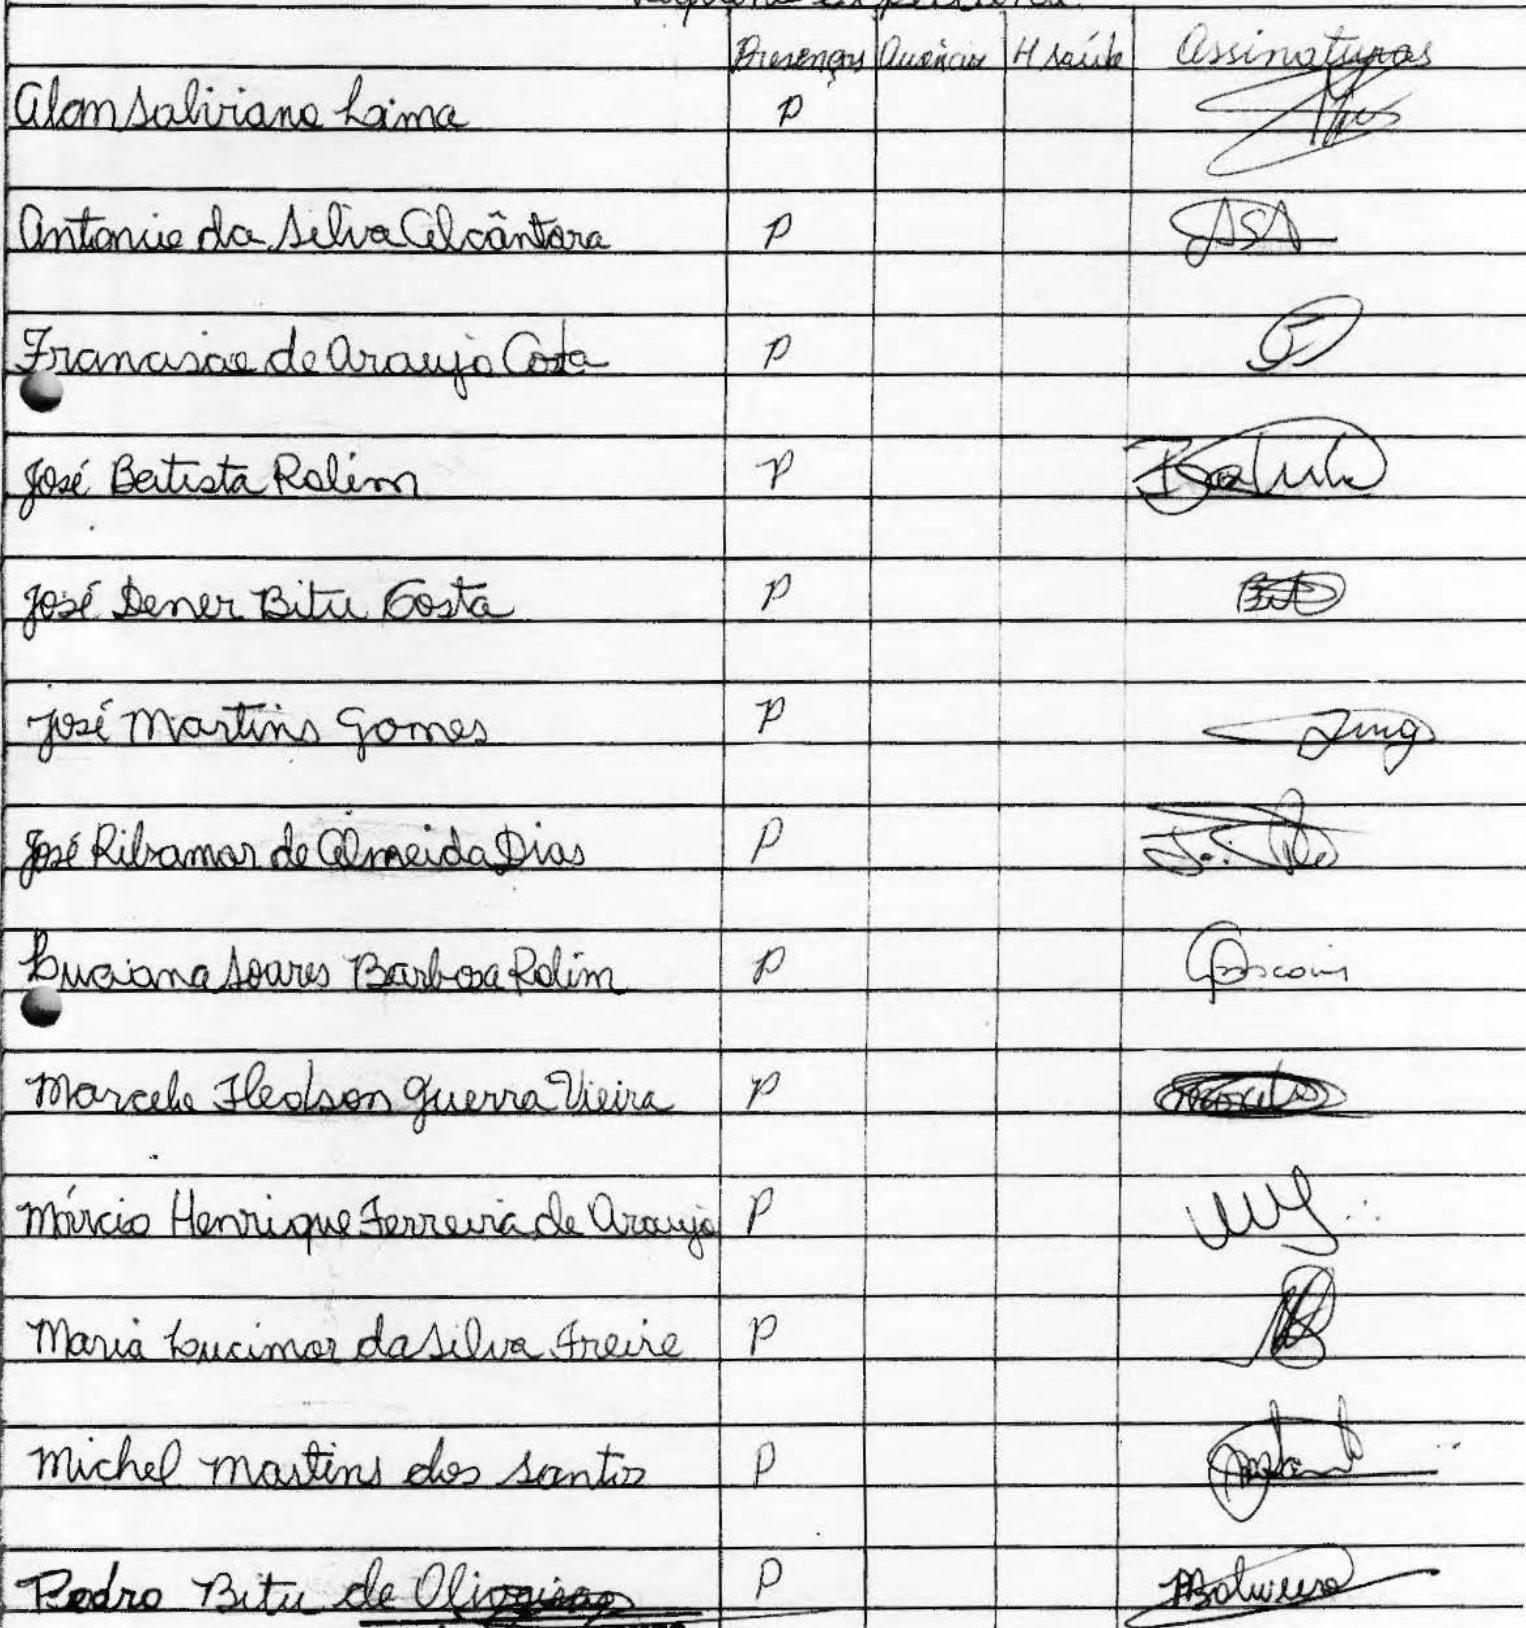 Presenças Ausências H saúde Assinaturas
Alan Saliviano Lima P
Antonio da Silva Alcântara P ASA
Francisco de Araujo Costa P
José Batista Rolim P Batista
José Dener Bitu Costa P Bitu
José Martins Gomes P Jmg
José Ribamar de Almeida Dias P
Luciana Soares Barbosa Rolim P
Marcelo Fledson Guerra Vieira P Marcelo
Márcio Henrique Ferreira de Araujo P
Maria Lucimar da Silva Freire P
Michel Martins dos Santos P
Pedro Bitu de Oliveira P